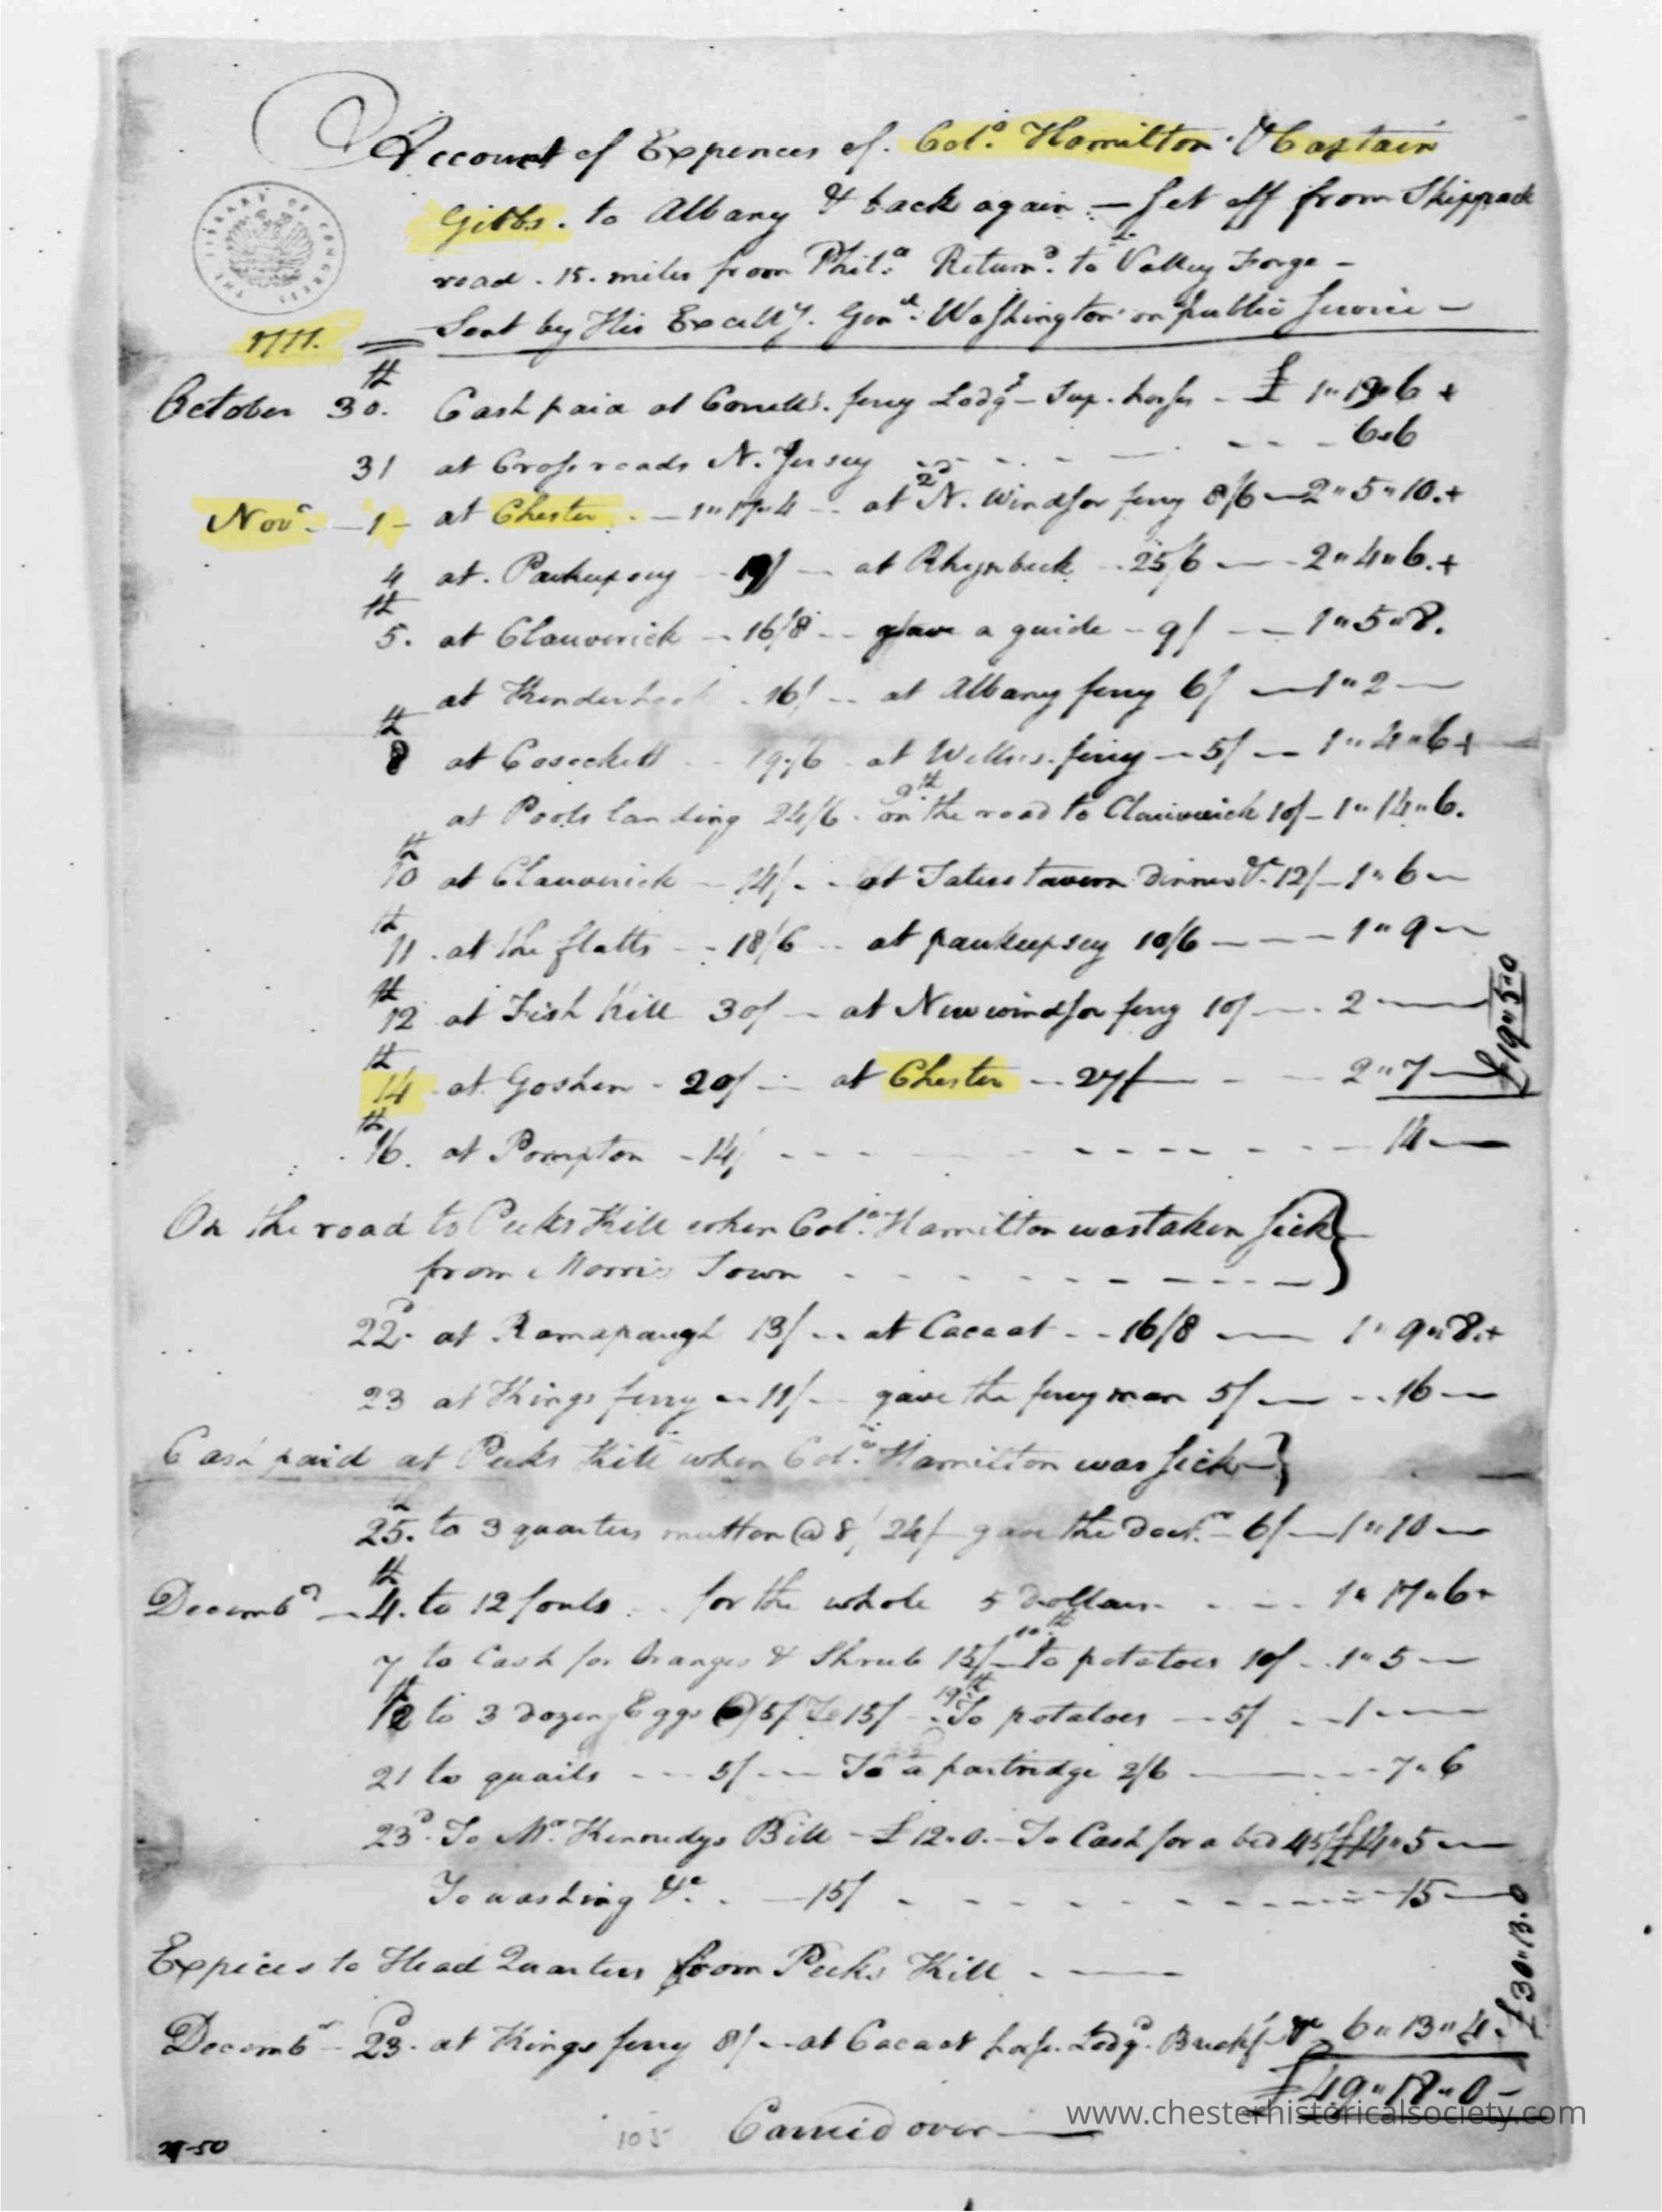 Account of Expences of. Col.º Hamilton & Captain
Gibbs. to Albany & back again — Set off from Skippack
road. 15. miles from Phil.ª Return.d to Valley Forge —
1777. Sent by His Excell.y Gen.l Washington on public Service —
October 30.th Cash paid at Conells. ferry Lodg.g — Sup. horses — £ 1"19"6 +
31 at Cross roads N. Jersey - - - 6"6
Nov.r — 1 — at Chester — 1"17"4 — at 2d N. Windsor ferry 8/6 — 2"5"10.+
4 at. Paukeepsey — 19/ — at Rhynbeck — 25/6 — 2"4"6.+
5.th at Clauverick — 16/8 — gave a guide — 9/ — 1"5"8.
at Kenderhook — 16/ — at Albany ferry 6/ — 1"2 —
8th at Coseckett — 19/6 at Wellses. ferry — 5/ — 1"4"6+
at Pools landing 24/6. 9th on the road to Clauverick 10/ — 1"14"6.
10th at Clauverick — 14/. — at tavern Dinner &c 12/ — 1"6 —
11th at the flatts — 18/6 — at paukeepsey 10/6 — 1"9 —
12th at Fish Kill 30/ — at New windsor ferry 10/ — 2 —
14th at Goshen — 20/ — at Chester — 27/ — 2"7 — £19"5"0
16.th at Pompton — 14/ - - - 14 —
On the road to Peeks Kill when Col.º Hamilton was taken Sick }
from Morris Town - - - }
22.d at Ramapaugh 13/ — at Cacaat — 16/8 — 1"9"8.+
23 at Kings ferry — 11/ — gave the ferry man 5/ — 16 —
Cash paid at Peeks Kill when Col.º Hamilton was Sick — }
25.th to 3 quarters mutton @ 8/ 24/ — gave the Doct.r — 6/ — 1"10 —
Decemb.r — 4.th to 12 fouls. for the whole 5 Dollars. — 1"17"6+
7 to Cash for Oranges & Shrub 15/ — 10th to potatoes 10/ — 1"5 —
12th to 3 dozen Eggs @ 5/ 15/ — 19th To potatoes — 5/ — 1 —
21 to quails — 5/ — To a partridge 2/6 — 7"6
23.d To M.r Kennedys Bill — £12"0. — To Cash for a bed 45/ £14"5 —
To washing &c. — 15/ - - - 15 — £30"13"0
Expices to Head Quarters from Peeks Kill - —
Decemb.r — 23.d at Kings ferry 8/ — at Cacaat hors. Lodg.g Breakf.t &c 6"13"4.
£49"18"0 —
Carried over —
105
29-50
THE LIBRARY OF CONGRESS
www.chesterhistoricalsociety.com